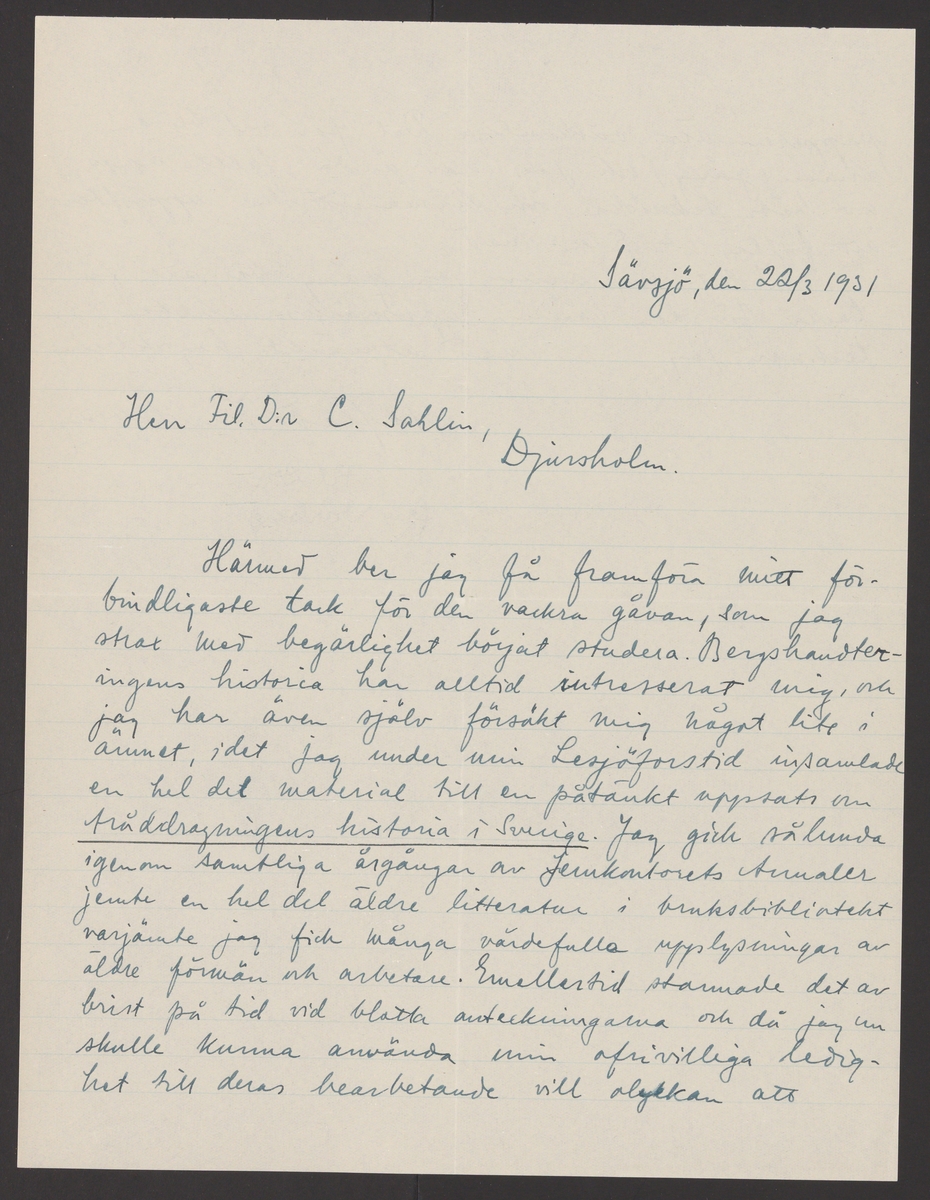 Sävsjö, den 22/3 1931
Herr Fil. D:r C. Sahlin,
Djursholm.
Härmed ber jag få framföra mitt för-
bindligaste tack för den vackra gåvan, som jag
strax med begärlighet börjat studera. Bergshandter-
ingens historia har alltid intresserat mig, och
jag har även själv försökt mig något lite i
ämnet, idet jag under min Lesjöforstid insamlade
en hel del material till en påtänkt uppsats om
tråddragningens historia i Sverige. Jag gick sålunda
igenom samtliga årgångar av Jernkontorets Annaler
jemte en hel del äldre litteratur i bruksbiblioteket
varjämte jag fick många värdefulla upplysningar av
äldre förmän och arbetare. Emellertid stannade det av
brist på tid vid blotta anteckningarna och då jag nu
skulle kunna använda min ofrivilliga ledig-
het till deras bearbetande vill olyckan att